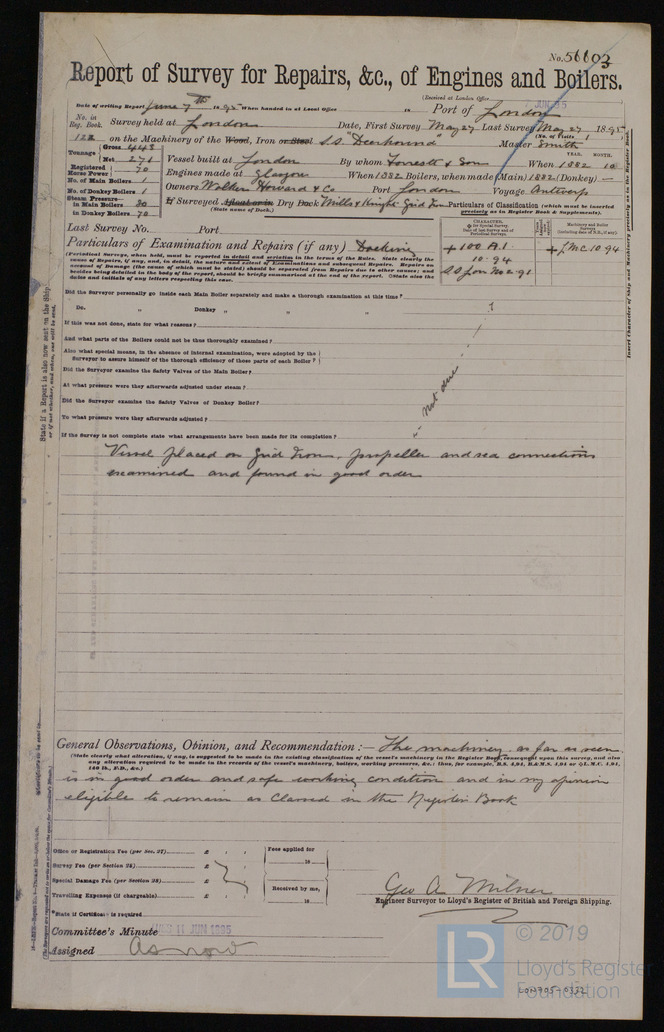 No. 56603
Report of Survey for Repairs, &c., of Engines and Boilers.
(Received at London Office
Date of writing Report June 7th 1895 When handed in at Local Office 18 Port of London
No. in Reg. Book. Survey held at London Date, First Survey May 27 Last Survey May 27 1895
(No. of Visits 1
122 on the Machinery of the Wood, Iron or Steel S.S. "Deerhound" Master Smith
Tonnage Gross 443 Net 271
Vessel built at London By whom Forrestt & Son When 1882 10
YEAR. MONTH.
Registered Horse Power 70
Engines made at Glasgow When 1882 Boilers, when made (Main) 1882 (Donkey) —
No. of Main Boilers 1
No. of Donkey Boilers 1
Owners Walker Howard & Co Port London Voyage Antwerp
Steam Pressure in Main Boilers 80
in Donkey Boilers 70
If Surveyed Afloat or in Dry Dock Mills & Knight Grid Iron
(State name of Dock.)
Particulars of Classification (which must be inserted precisely as in Register Book & Supplements).
Last Survey No. Port
Particulars of Examination and Repairs (if any) Docking
CHARACTER.
+ 100 A.1.
10.94
SS Lon No 2-91
+ LMC 10.94
(Periodical Surveys, when held, must be reported in detail and seriatim in the terms of the Rules. State clearly the
cause of Repairs, if any, and, in detail, the nature and extent of Examinations and subsequent Repairs. Repairs on
account of Damage (the cause of which must be stated) should be separated from Repairs due to other causes; and
besides being detailed in the body of the report, should be briefly summarised at the end of the report. State also the
dates and initials of any letters respecting this case.
Did the Surveyor personally go inside each Main Boiler separately and make a thorough examination at this time?
Do. " Donkey " " "
If this was not done, state for what reasons?
And what parts of the Boilers could not be thus thoroughly examined?
Also what special means, in the absence of internal examination, were adopted by the
Surveyor to assure himself of the thorough efficiency of those parts of each Boiler?
Did the Surveyor examine the Safety Valves of the Main Boiler?
At what pressure were they afterwards adjusted under steam?
Did the Surveyor examine the Safety Valves of Donkey Boiler?
To what pressure were they afterwards adjusted?
If the Survey is not complete state what arrangements have been made for its completion?
not due
Vessel placed on Grid Iron, propeller and sea connections
examined and found in good order
General Observations, Opinion, and Recommendation:— The machinery as far as seen
(State clearly what alteration, if any, is suggested to be made in the existing classification of the vessel's machinery in the Register Book, consequent upon this survey, and also
any alteration required to be made in the records of the vessel's machinery, boilers, working pressures, &c.
is in good order and safe working condition and in my opinion
eligible to remain as Classed in the Register Book
Office or Registration Fee (per Sec. 27) £
Survey Fee (per Section 28) £
Special Damage Fee (per Section 28) £
Travelling Expenses (if chargeable) £
Fees applied for
18
Received by me,
18
*State if Certificate is required
Geo A Milner
Engineer Surveyor to Lloyd's Register of British and Foreign Shipping.
Committee's Minute TUES 11 JUN 1895
Assigned As now
State if a Report is also now sent on the Ship
or if not whether, and when, one will be sent.
Insert Character of Ship and Machinery precisely as in the Register Book.
LR
© 2019
Lloyd's Register
Foundation
LON705-0332